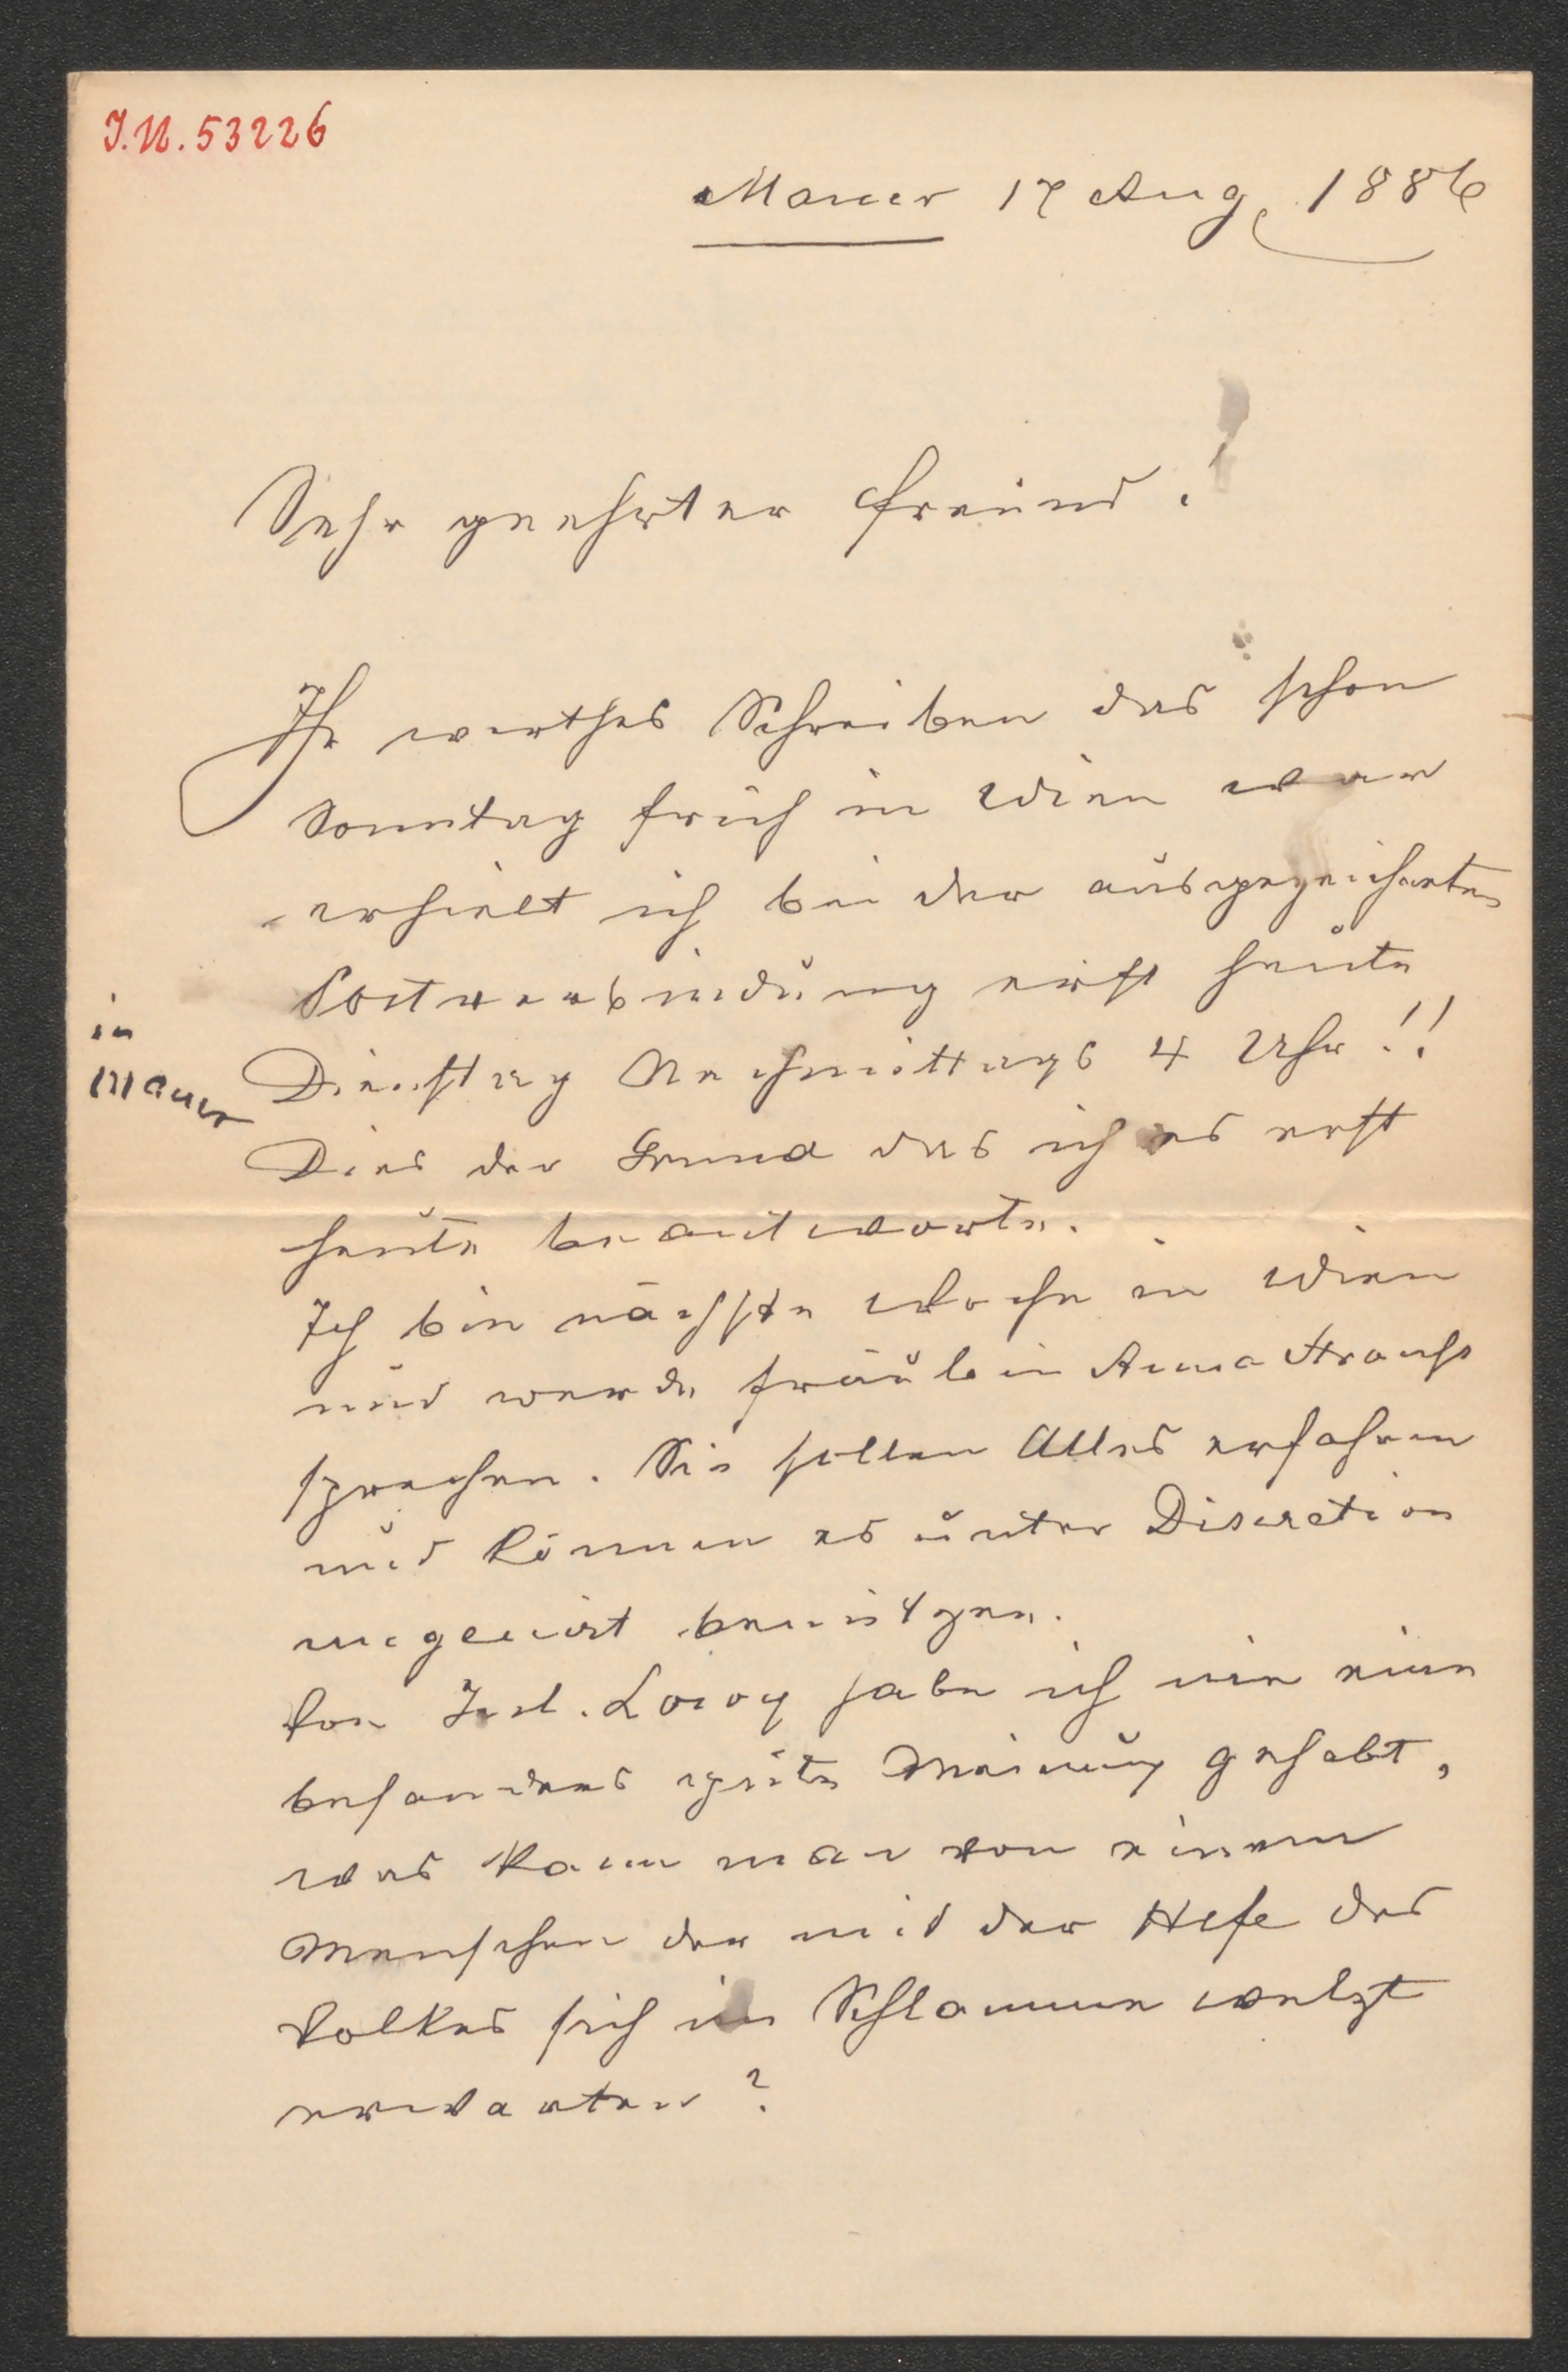 J.N. 53226
Mauer 17 Aug. 1886
Sehr geehrter Freund!
Ihr werthes Schreiben das schon
Sonntag früh in Wien war
erhielt ich bei der ausgezeichneten
Postverbindung erst heute
in
Mauer
Dienstag Nachmittags 4 Uhr!!
Dies der Grund das ich es erst
heute beantworte.
Ich bin nächste Woche in Wien
und werde Fräulein Anna Strauss
sprechen. Sie sollen Alles erfahren
und können es unter Discretion
ungenirt benützen.
Von Lowy habe ich nie eine
besonders gute Meinung gehabt,
was kann man von einem
Menschen der mit der Hefe des
Volkes sich im Schlamme welzt
erwarten?